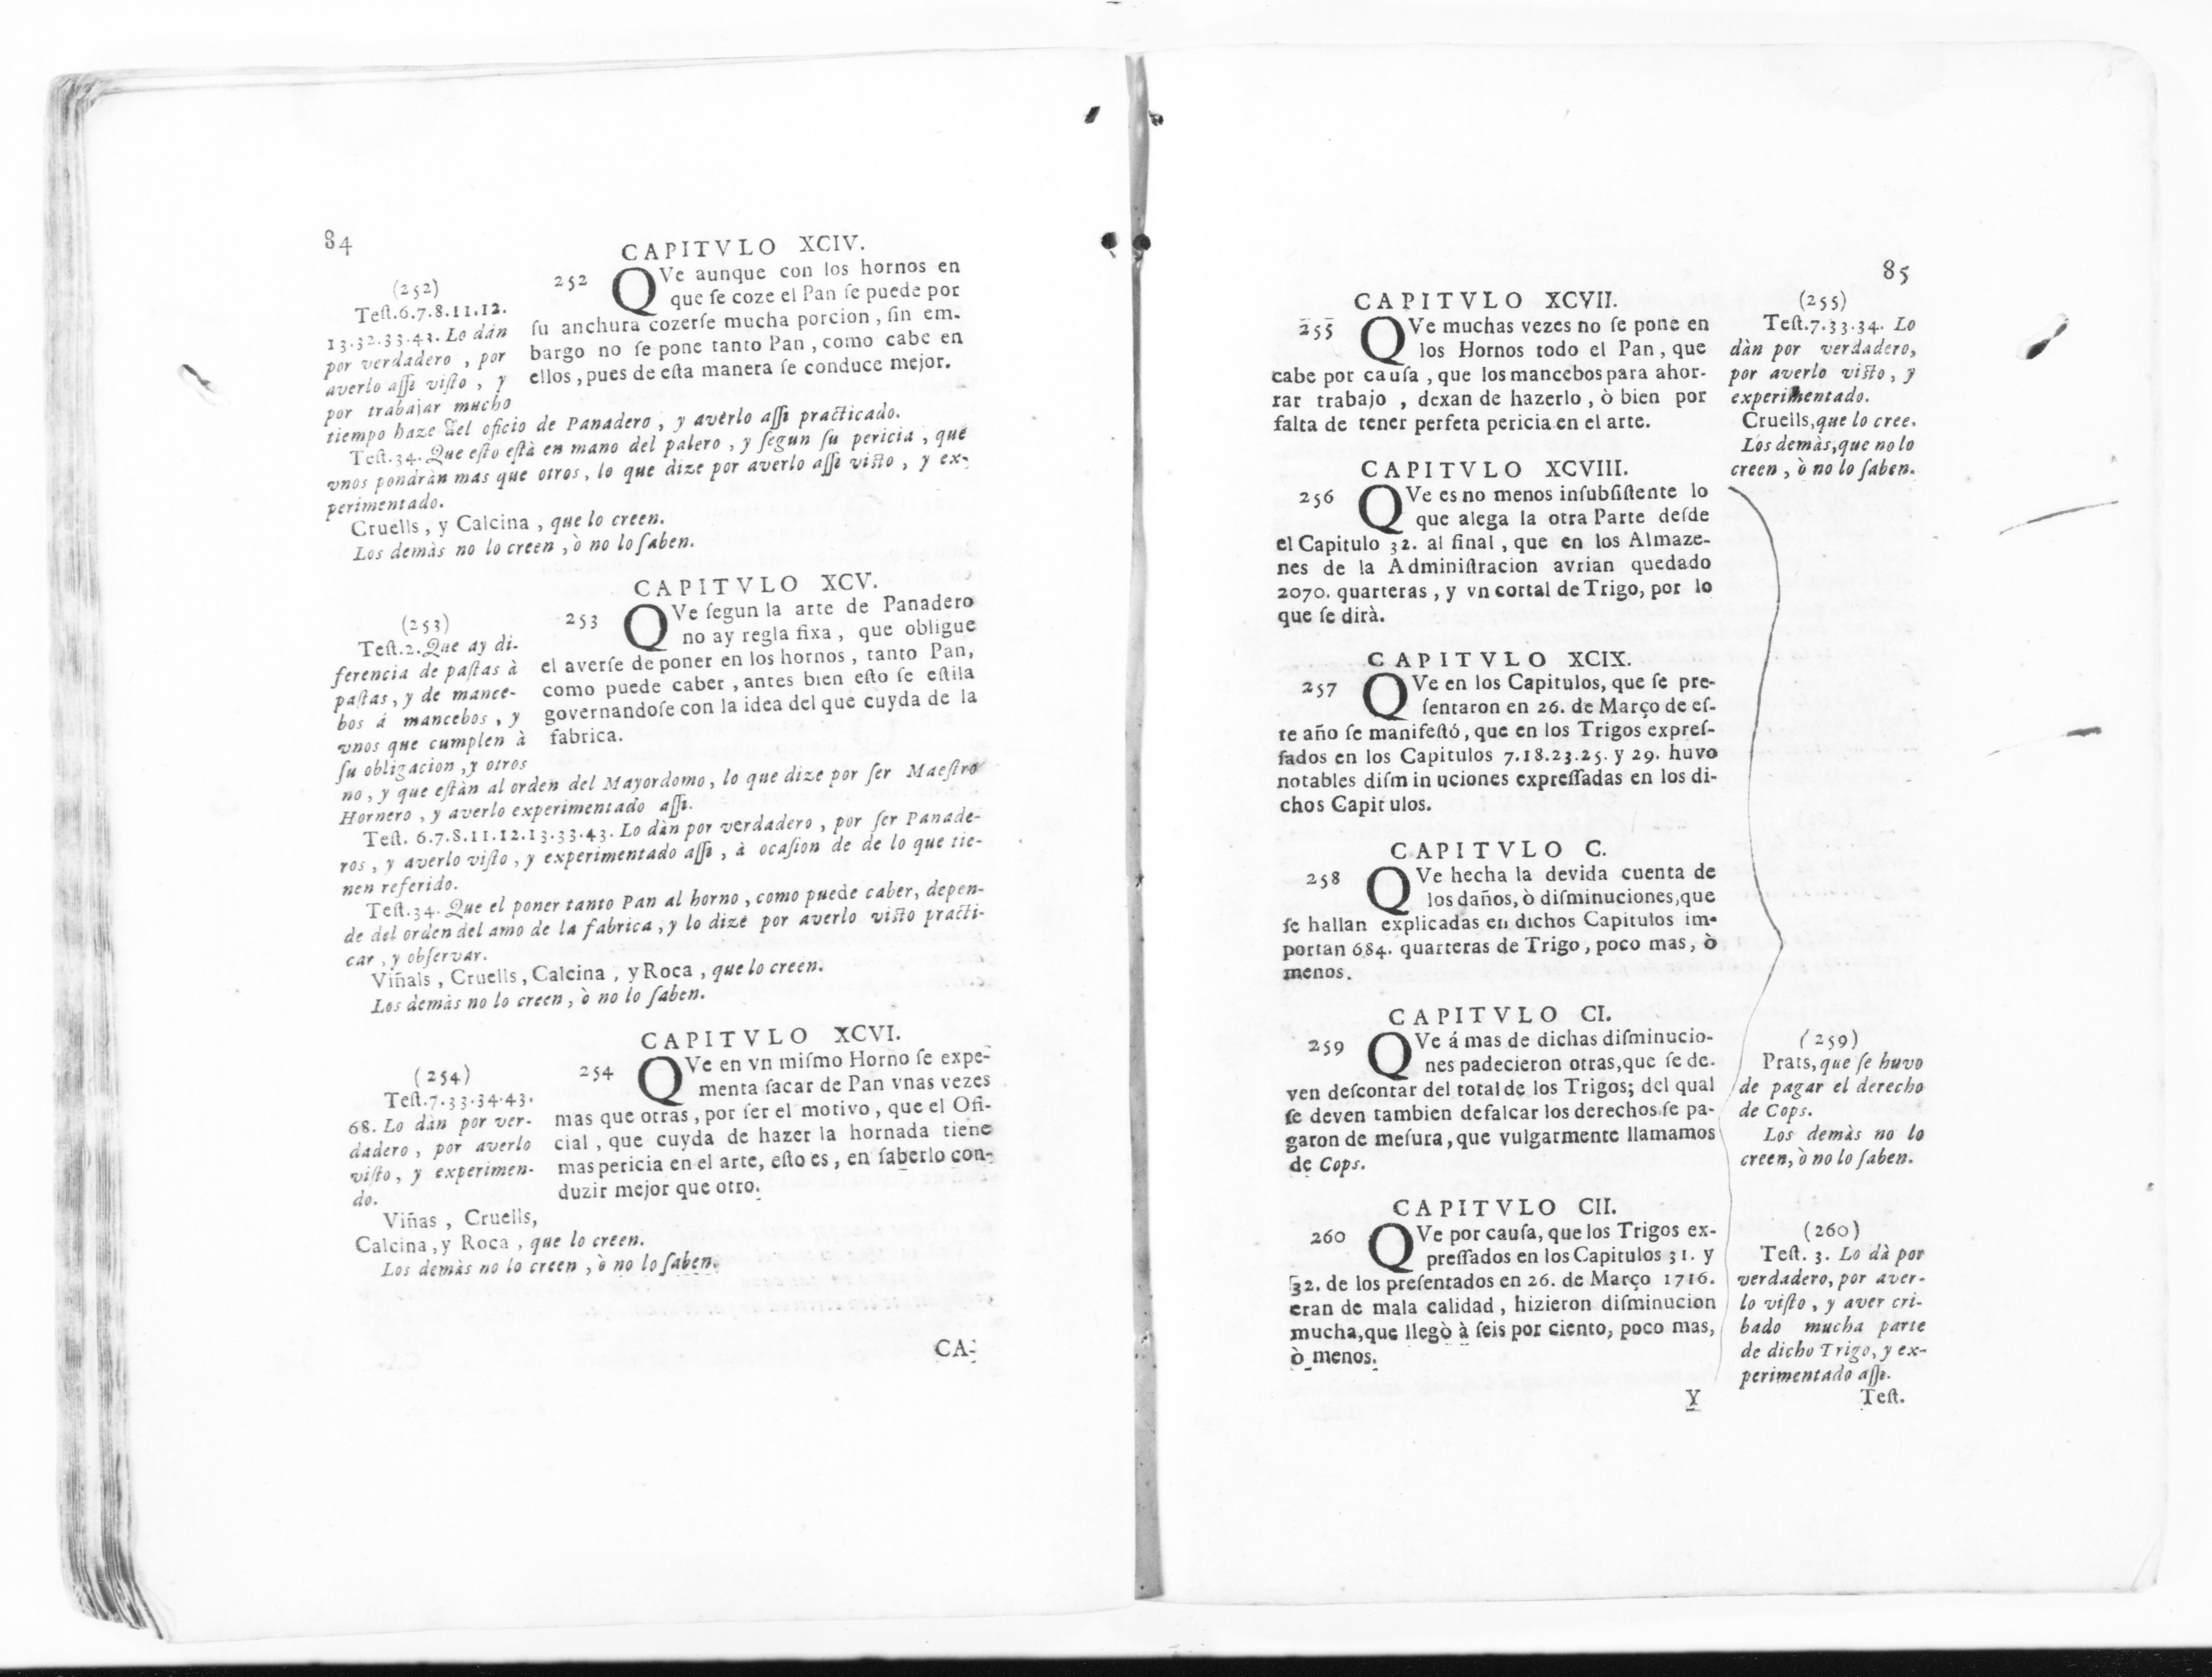 84
CAPITVLO XCIV.
252 QVe aunque con los hornos en
que ſe coze el Pan ſe puede por
ſu anchura cozerſe mucha porcion, ſin em-
bargo no ſe pone tanto Pan, como cabe en
ellos, pues de eſta manera ſe conduce mejor.
(252)
Teſt.6.7.8.11.12.
13.32.33.43. Lo dán
por verdadero, por
averlo aſſi viſto, y
por trabajar mucho
tiempo haze del oficio de Panadero, y avèrlo aſſi practicado.
Teſt.34. Que eſto eſtà en mano del palero, y ſegun ſu pericia, que
vnos pondràn mas que otros, lo que dize por averlo aſſi viſto, y ex-
perimentado.
Cruells, y Calcina, que lo creen.
Los demàs no lo creen, ò no lo ſaben.
CAPITVLO XCV.
253 QVe ſegun la arte de Panadero
no ay regla fixa, que obligue
el averſe de poner en los hornos, tanto Pan,
como puede caber, antes bien eſto ſe eſtila
governandoſe con la idea del que cuyda de la
fabrica.
(253)
Teſt.2. Que ay di-
ferencia de paſtas à
paſtas, y de mance-
bos á mancebos, y
vnos que cumplen à
ſu obligacion, y otros
no, y que eſtàn al orden del Mayordomo, lo que dize por ſer Maeſtro
Hornero, y averlo experimentado aſſi.
Teſt. 6.7.8.11.12.13.33.43. Lo dàn por verdadero, por ſer Panade-
ros, y averlo viſto, y experimentado aſſi, à ocaſion de de lo que tie-
nen referido.
Teſt.34. Que el poner tanto Pan al horno, como puede caber, depen-
de del orden del amo de la fabrica, y lo dize por averlo viſto practi-
car, y obſervar.
Viñals, Cruells, Calcina, y Roca, que lo creen.
Los demàs no lo creen, ò no lo ſaben.
CAPITVLO XCVI.
254 QVe en vn miſmo Horno ſe expe-
menta ſacar de Pan vnas vezes
mas que otras, por ſer el motivo, que el Ofi-
cial, que cuyda de hazer la hornada tiene
mas pericia en el arte, eſto es, en ſaberlo con-
duzir mejor que otro.
(254)
Teſt.7.33.34.43.
68. Lo dàn por ver-
dadero, por averlo
viſto, y experimen-
do.
Viñas, Cruells,
Calcina, y Roca, que lo creen.
Los demàs no lo creen, ò no lo ſaben.
CA-
85
CAPITVLO XCVII.
255 QVe muchas vezes no ſe pone en
los Hornos todo el Pan, que
cabe por cauſa, que los mancebos para ahor-
rar trabajo, dexan de hazerlo, ò bien por
falta de tener perfeta pericia en el arte.
(255)
Teſt.7.33.34. Lo
dàn por verdadero,
por averlo viſto, y
experimentado.
Cruells, que lo cree.
Los demàs, que no lo
creen, ò no lo ſaben.
CAPITVLO XCVIII.
256 QVe es no menos inſubſiſtente lo
que alega la otra Parte deſde
el Capitulo 32. al final, que en los Almaze-
nes de la Adminiſtracion avrian quedado
2070. quarteras, y vn cortal de Trigo, por lo
que ſe dirà.
CAPITVLO XCIX.
257 QVe en los Capitulos, que ſe pre-
ſentaron en 26. de Março de eſ-
te año ſe manifeſtó, que en los Trigos expreſ-
ſados en los Capitulos 7.18.23.25. y 29. huvo
notables diſminuciones expreſſadas en los di-
chos Capitulos.
CAPITVLO C.
258 QVe hecha la devida cuenta de
los daños, ò diſminuciones, que
ſe hallan explicadas en dichos Capitulos im-
portan 684. quarteras de Trigo, poco mas, ò
menos.
CAPITVLO CI.
259 QVe á mas de dichas diſminucio-
nes padecieron otras, que ſe de-
ven deſcontar del total de los Trigos; del qual
ſe deven tambien defalcar los derechos ſe pa-
garon de meſura, que vulgarmente llamamos
de Cops.
(259)
Prats, que ſe huvo
de pagar el derecho
de Cops.
Los demàs no lo
creen, ò no lo ſaben.
CAPITVLO CII.
260 QVe por cauſa, que los Trigos ex-
preſſados en los Capitulos 31. y
32. de los preſentados en 26. de Março 1716.
eran de mala calidad, hizieron diſminucion
mucha, que llegò à ſeis por ciento, poco mas,
ò menos.
(260)
Teſt. 3. Lo dà por
verdadero, por aver-
lo viſto, y aver cri-
bado mucha parte
de dicho Trigo, y ex-
perimentado aſſi.
Y
Teſt.